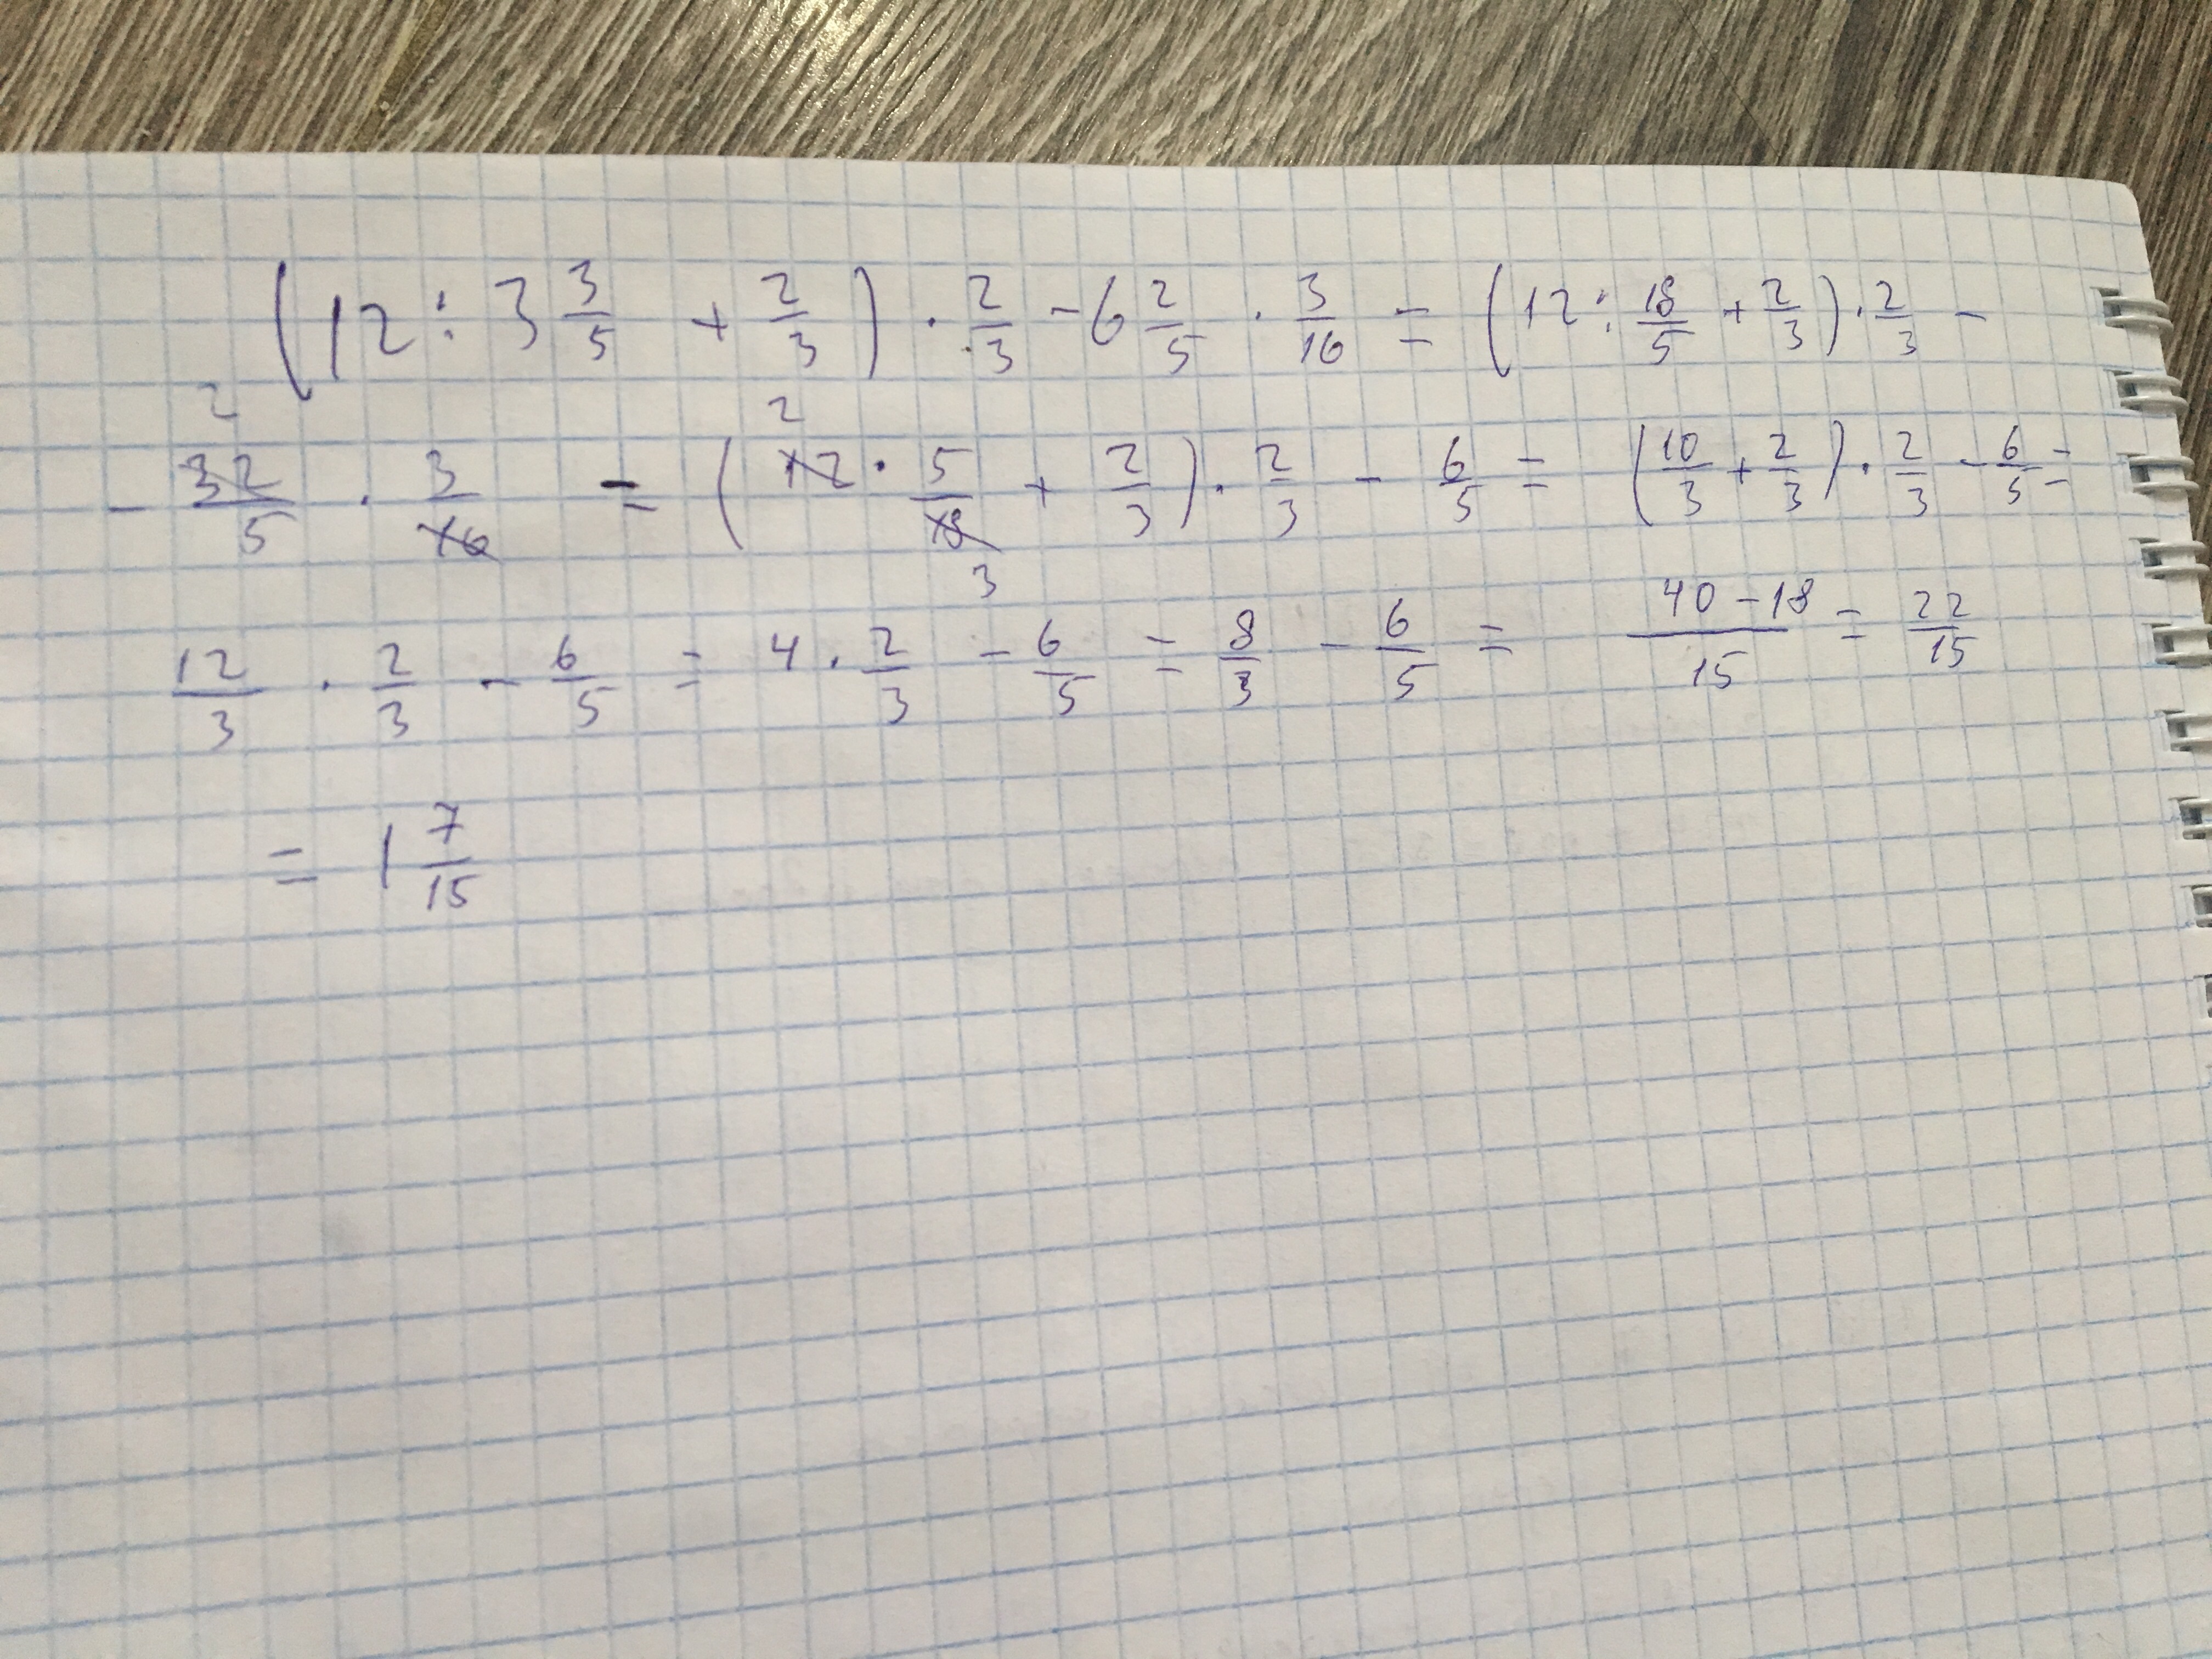 (12 : 3 3/5 + 2/3) · 2/3 - 6 2/5 · 3/16 = (12 : 18/5 + 2/3) · 2/3 -
- 32/5 · 3/16 = (12 · 5/18 + 2/3) · 2/3 - 6/5 = (10/3 + 2/3) · 2/3 - 6/5 =
12/3 · 2/3 - 6/5 = 4 · 2/3 - 6/5 = 8/3 - 6/5 = (40 - 18)/15 = 22/15
= 1 7/15